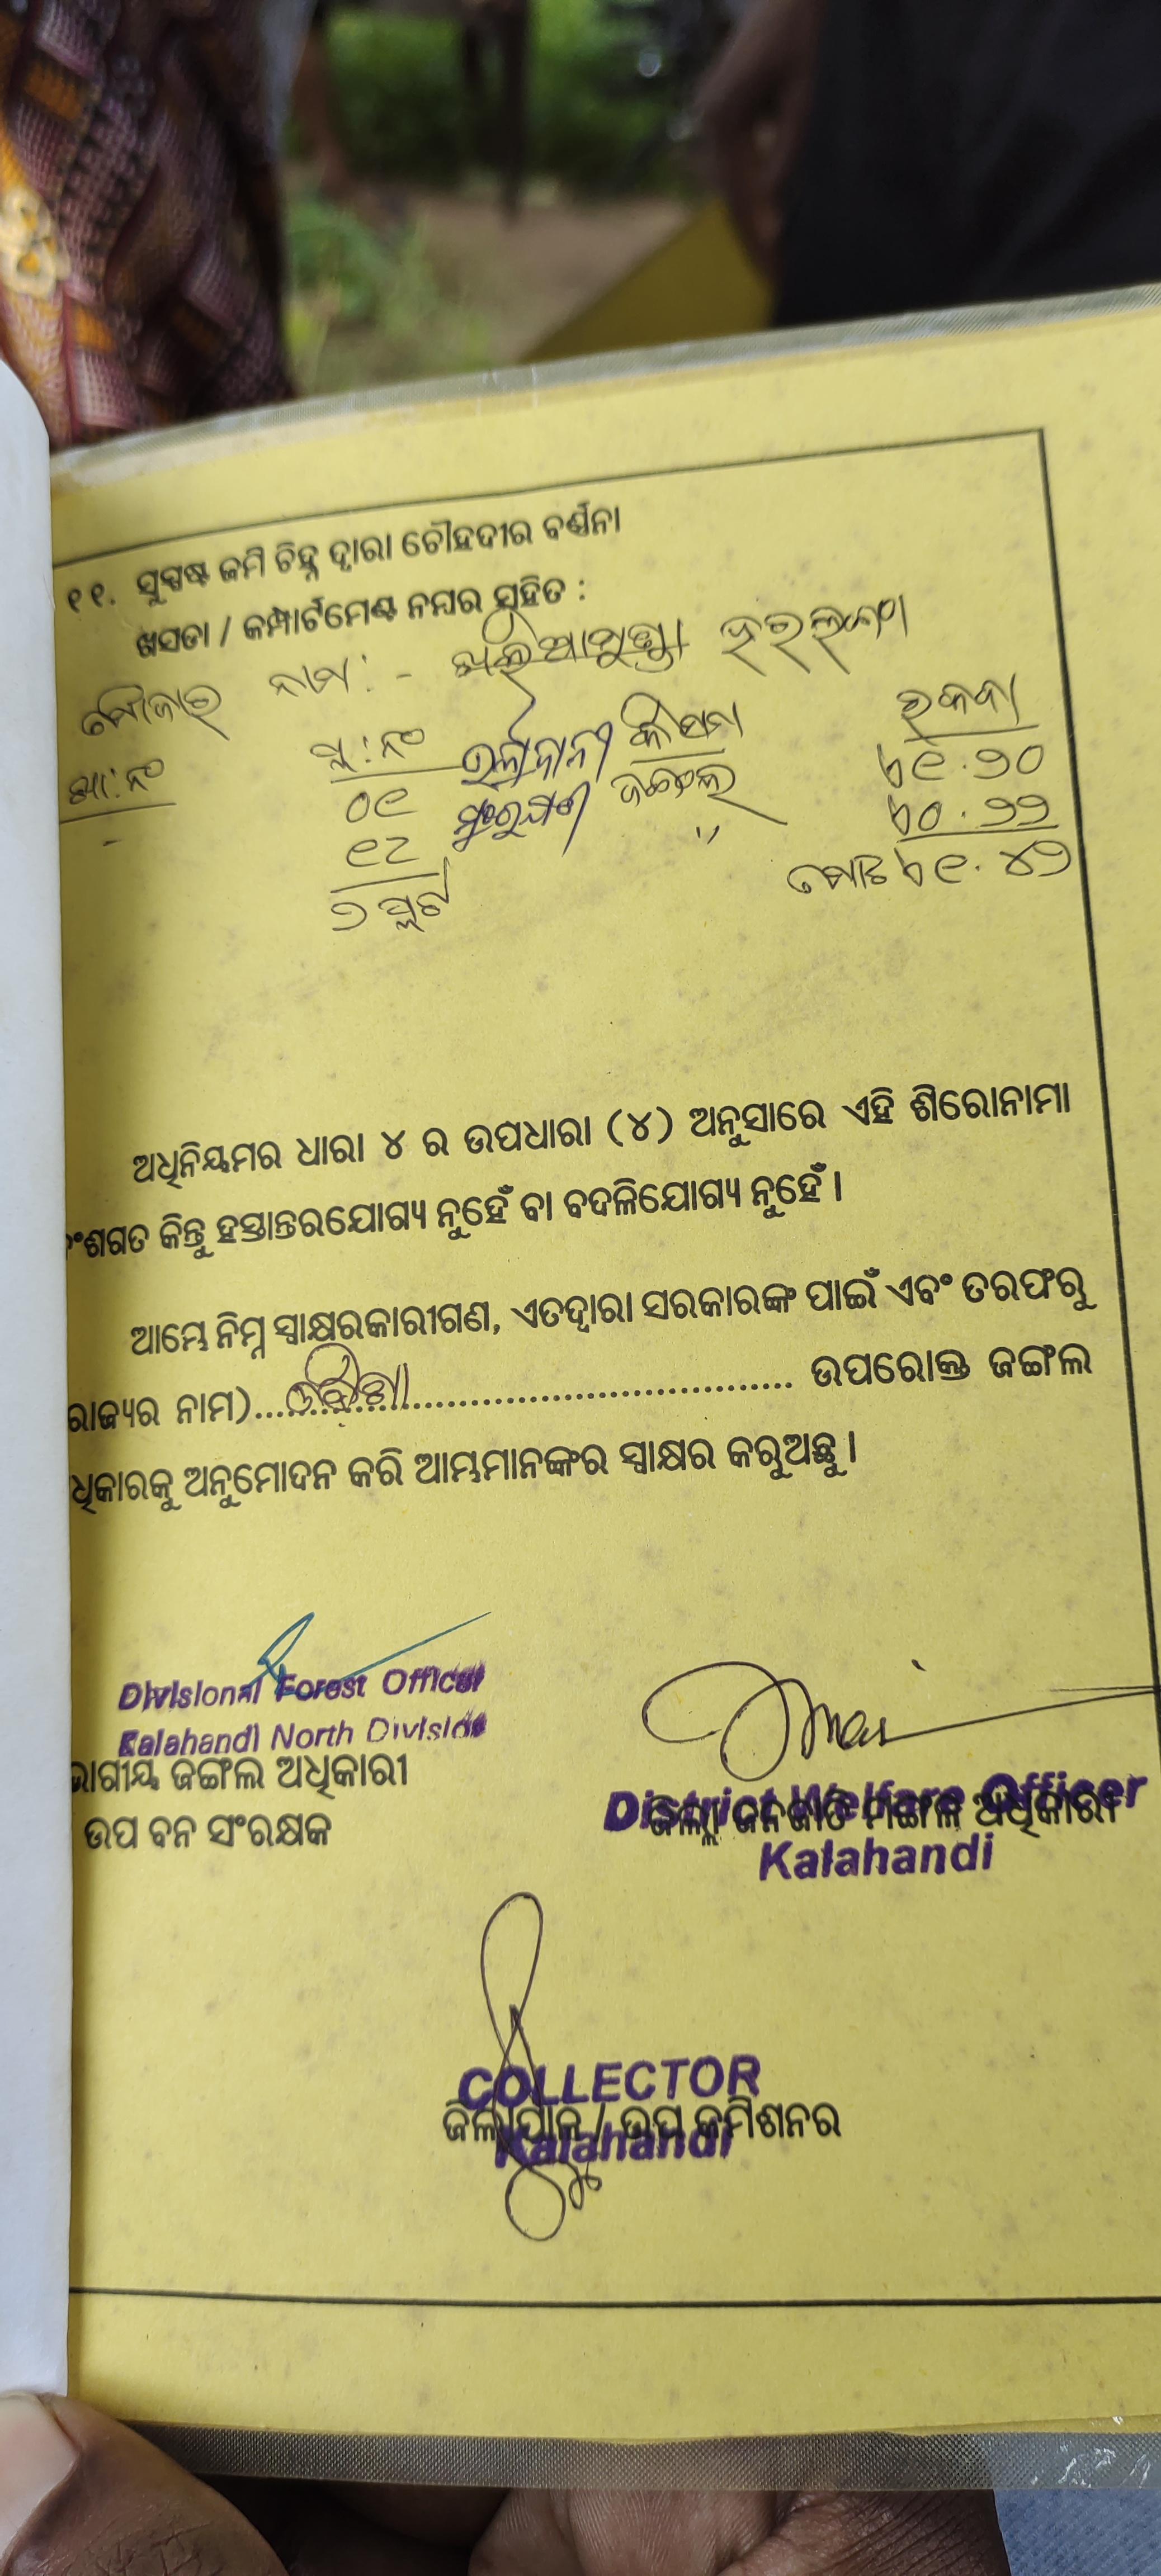 ୧୧. ସୁସ୍ପଷ୍ଟ ଜମି ଚିହ୍ନ ଦ୍ଵାରା ଚୌହଦୀର ବର୍ଣ୍ଣନା
ଖସଡା / କମ୍ପାର୍ଟମେଣ୍ଟ ନମ୍ବର ସହିତ :
ମୌଜାର ନାମ :-
ଖା:ନଂ ପ୍ଲ:ନଂ କିସମ ରକବା
୦୧ ଜଙ୍ଗଲ ଏ୧.୨୦
- ୧୮ " ଏ୦.୨୨
୨ ପ୍ଲଟ ମୋଟ ଏ୧.୪୨
ଅଧିନିୟମର ଧାରା ୪ ର ଉପଧାରା (୪) ଅନୁସାରେ ଏହି ଶିରୋନାମା
ବଂଶଗତ କିନ୍ତୁ ହସ୍ତାନ୍ତରଯୋଗ୍ୟ ନୁହେଁ ବା ବଦଳିଯୋଗ୍ୟ ନୁହେଁ ।
ଆମ୍ଭେ ନିମ୍ନ ସ୍ଵାକ୍ଷରକାରୀଗଣ, ଏତଦ୍ଵାରା ସରକାରଙ୍କ ପାଇଁ ଏବଂ ତରଫରୁ
ରାଜ୍ୟର ନାମ) ଓଡ଼ିଶା ........................ ଉପରୋକ୍ତ ଜଙ୍ଗଲ
ଧିକାରକୁ ଅନୁମୋଦନ କରି ଆମ୍ଭମାନଙ୍କର ସ୍ଵାକ୍ଷର କରୁଅଛୁ ।
Divisional Forest Officer
Kalahandi North Division
ଭାଗୀୟ ଜଙ୍ଗଲ ଅଧିକାରୀ
ଉପ ବନ ସଂରକ୍ଷକ
District Welfare Officer
ଜିଲ୍ଲା ଜନଜାତି ମଙ୍ଗଳ ଅଧିକାରୀ
Kalahandi
COLLECTOR
ଜିଲ୍ଲାପାଳ / ଉପ କମିଶନର
Kalahandi